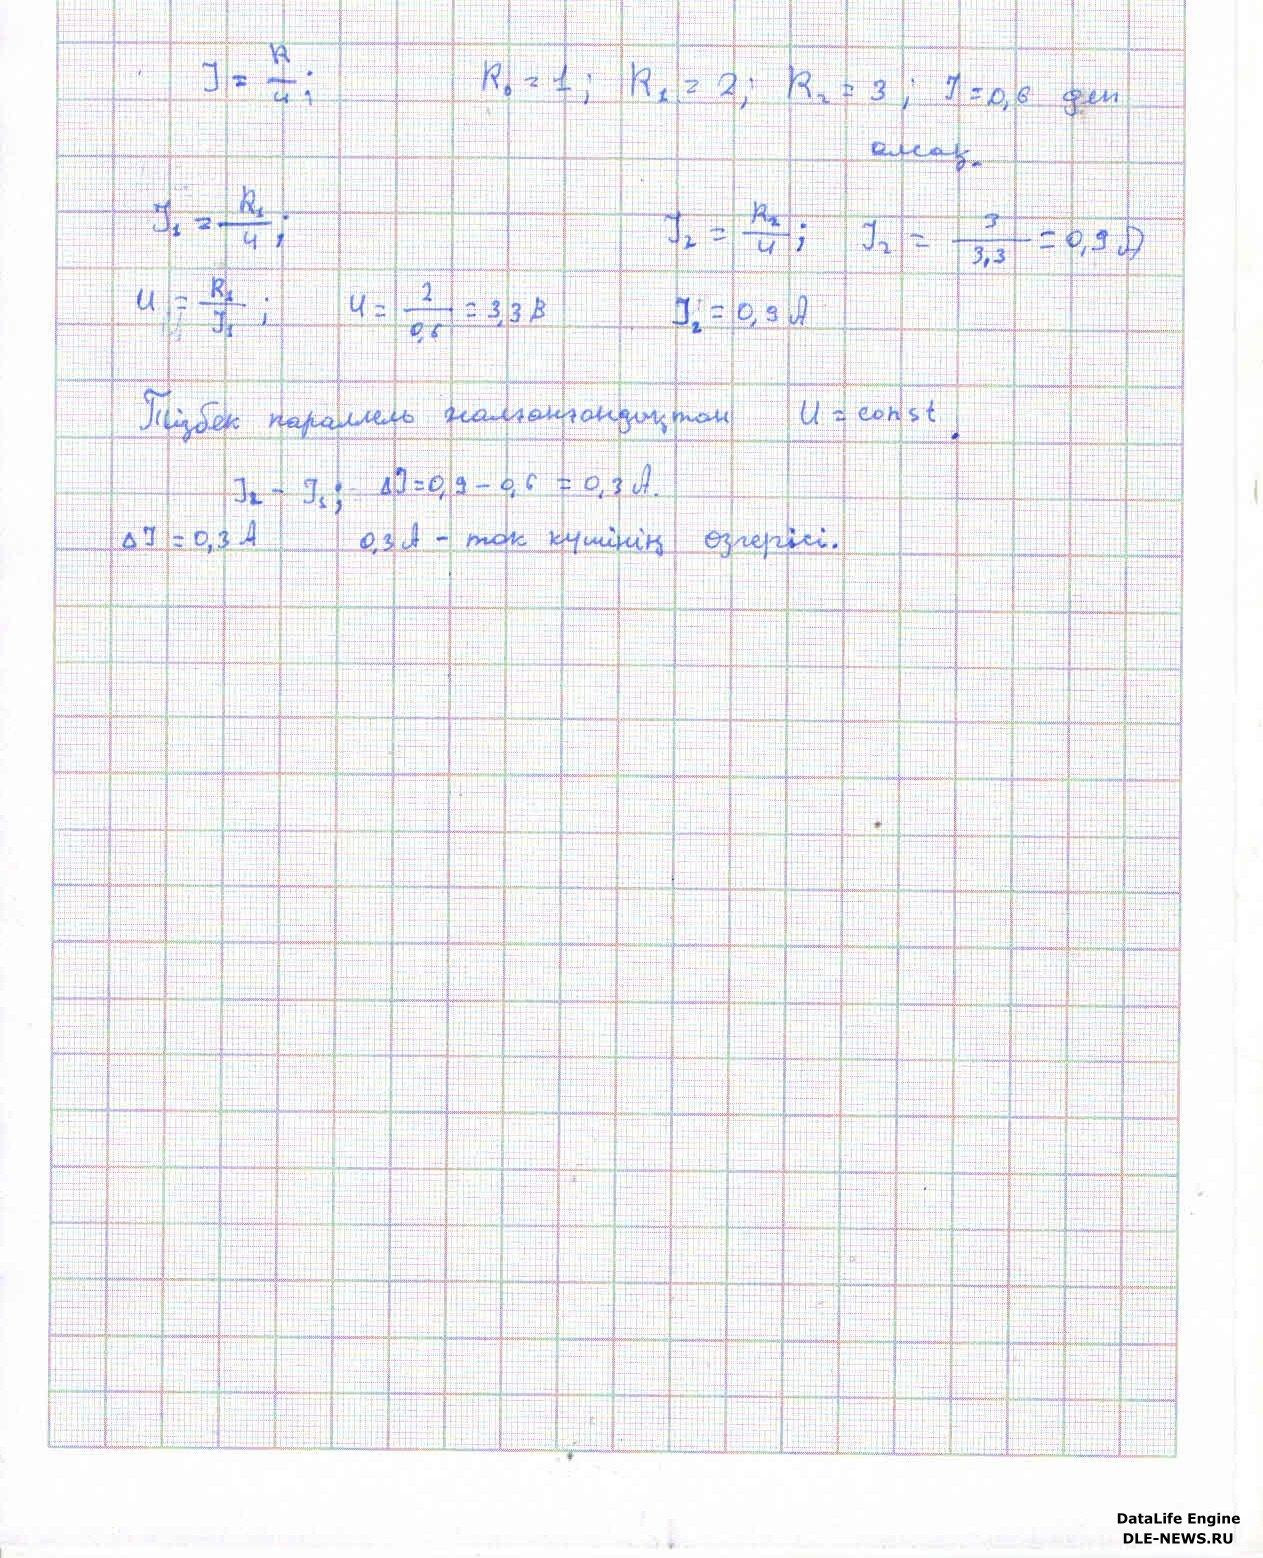 I = R/u; R₀ = 1; R₁ = 2; R₂ = 3; I = 0,6 деп
алсақ.
I₁ = R₁/u; I₂ = R₂/u; I₂ = 3/3,3 = 0,9 A
u = R₁/I₁; u = 2/0,6 = 3,3 В I₂ = 0,9 A
Тізбек параллель жалғанғандықтан u = const.
I₂ - I₁; ΔI = 0,9 - 0,6 = 0,3 A.
ΔI = 0,3 A 0,3 A - ток күшінің өзгерісі.
DataLife Engine
DLE-NEWS.RU